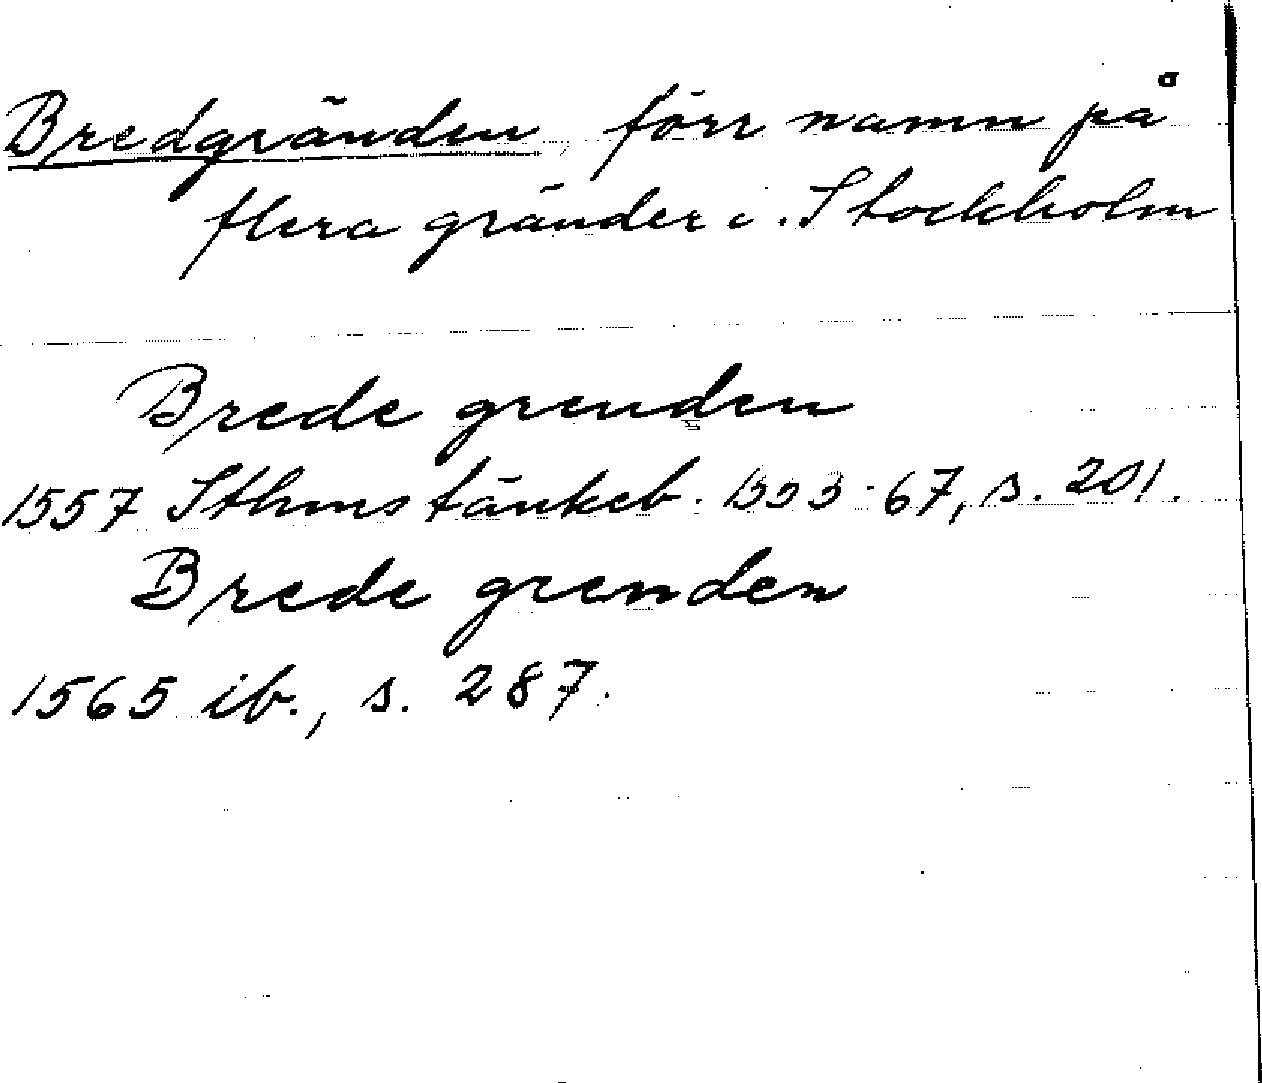 Bredgränden, förr namn på
flera gränder i Stockholm
Brede grenden
1557 Sthms tänkeb. 1553-67, s. 201.
Brede grenden
1565 ib., s. 287.